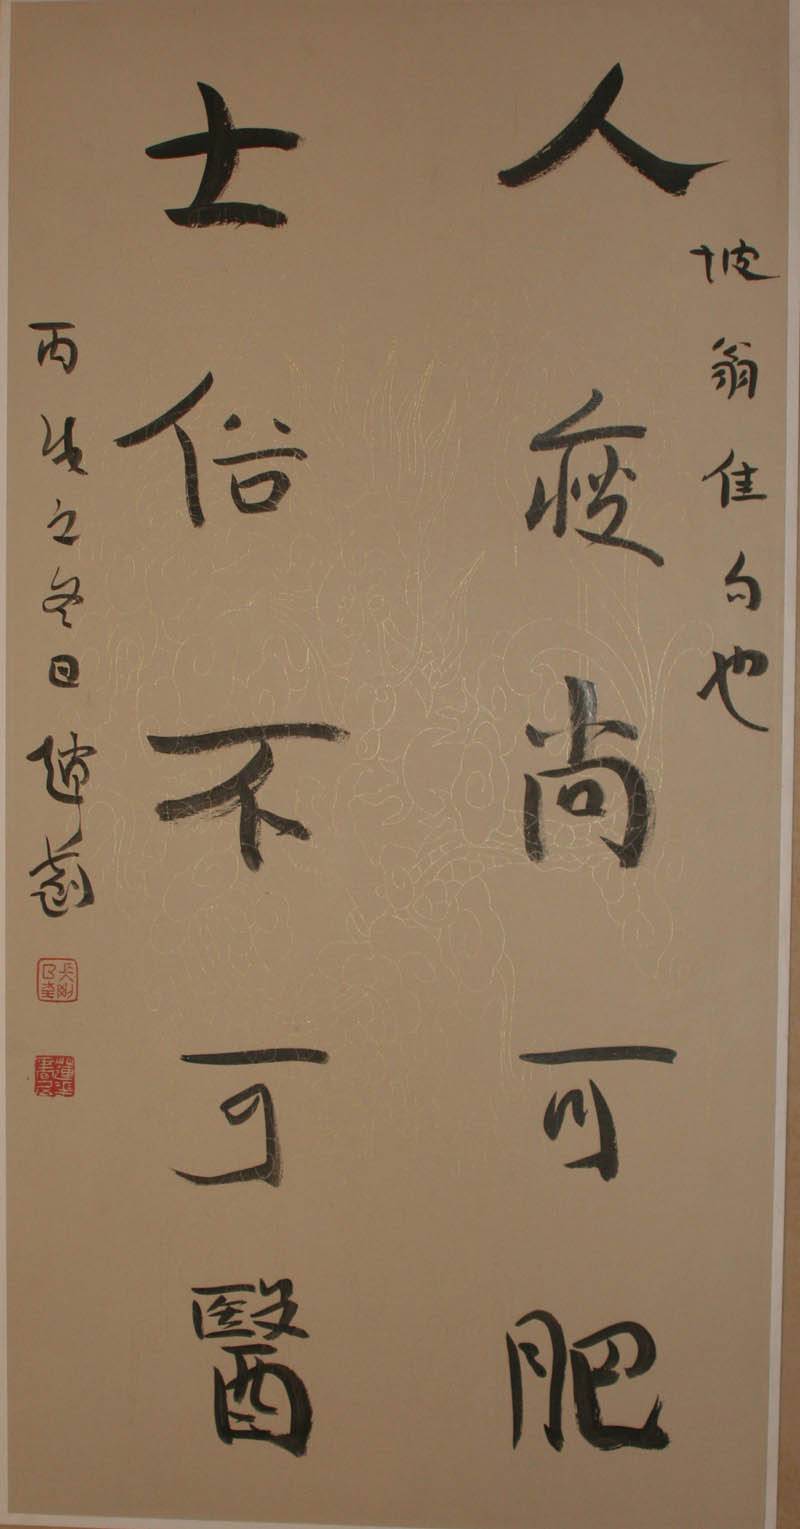 坡翁佳句也
人瘦尚可肥
士俗不可醫
丙戌之冬日